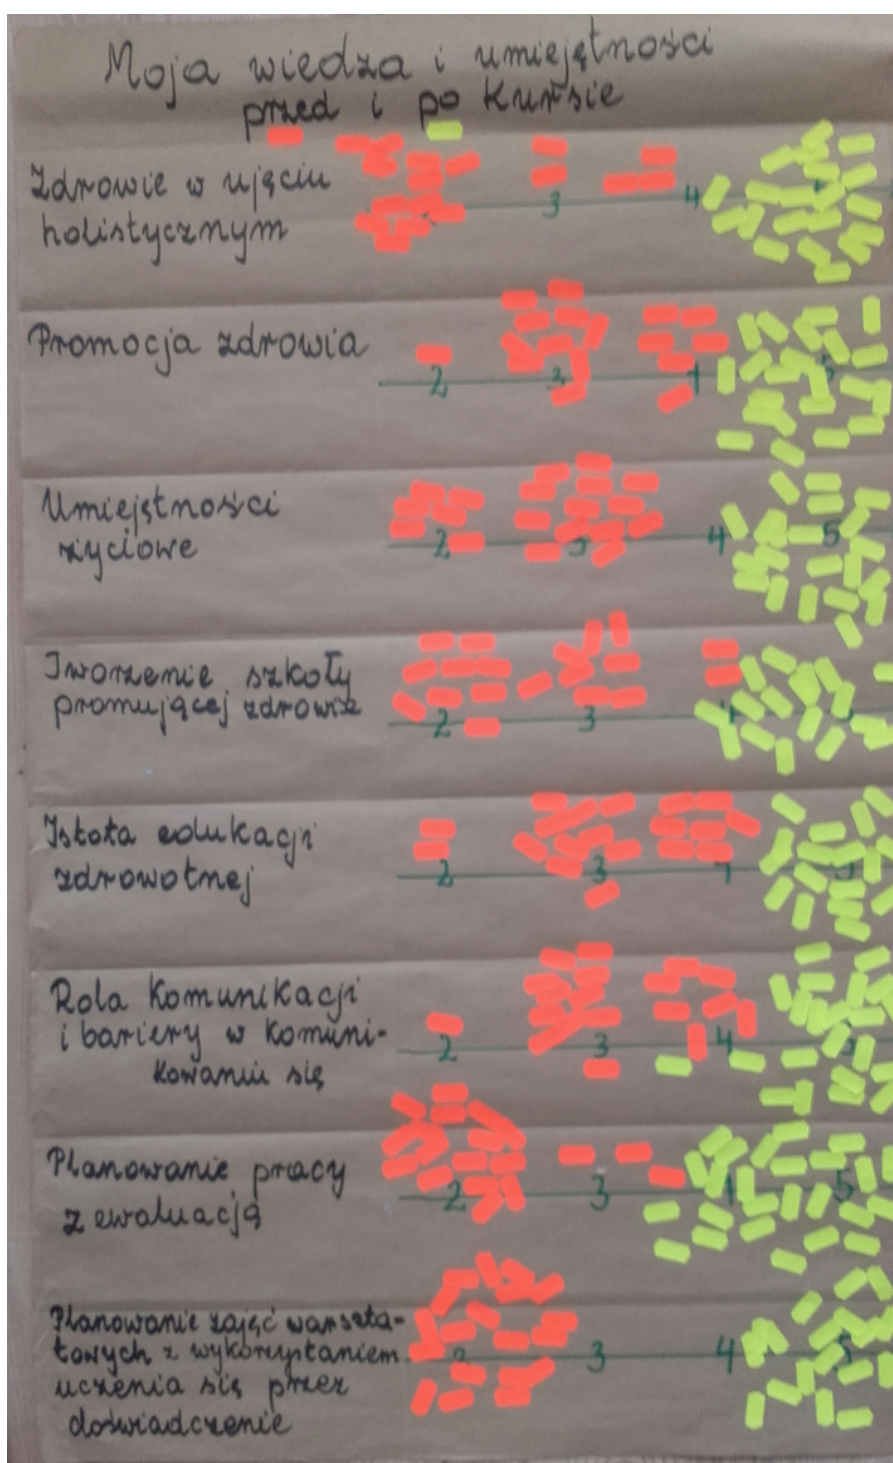 Moja wiedza i umiejętności
przed i po kursie
Zdrowie w ujęciu
holistycznym
3 4
Promocja zdrowia
2 3 4 5
Umiejętności
życiowe
2 3 4 5
Tworzenie szkoły
promującej zdrowie
2 3
Istota edukacji
zdrowotnej
2 3 4 5
Rola komunikacji
i bariery w komuni-
kowaniu się
2 3 4
Planowanie pracy
z ewaluacją
2 3 4 5
Planowanie zajęć warszta-
towych z wykorzystaniem
uczenia się przez
doświadczenie
2 3 4 5